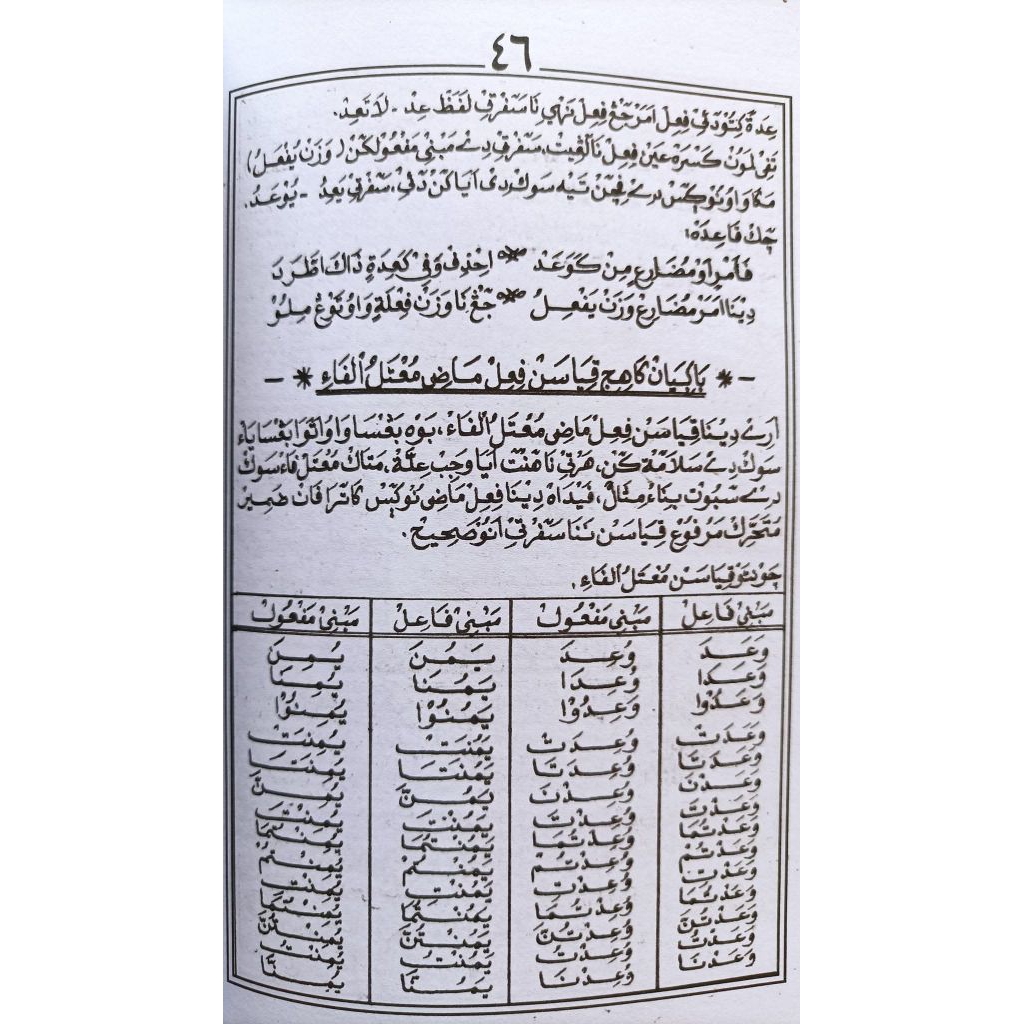 ٤٦
عِدَةٌ كِتُوْدَلَمْ فِعِلْ اَمَرْ جَڠْ فِعِلْ نَهِي نَا سَفَرْتِيْ لَفَظْ عِدْ - لَا تَعِدْ.
تَفِيْ لَمَوْنْ كَسْرَهْ عَيْن فِعِلْ نَا لَڠِيْتْ، سَفَرْتِيْ دِيْ مَبْنِى مَفْعُوْلْكَنْ (وَزَنْ يُفْعَلُ)
مَڪَا وَاوُ نَوْكِسْ دِيْ
سَفَرْتِيْ يَعِدُ - يُوْعَدُ.
قَاعِدَهْ:
فَأَمْرٍ اَوْ مُضَارِعٍ مِنْ كَوَعَدْ * اِحْذِفْ وَفِيْ كَعِدَةٍ ذَاكَ اطَّرَدْ
دِيْنَا اَمَرْ مُضَارِعْ وَزَنْ يَفْعِلُ * جَڠْ نَا وَزَنْ فِعْلَةٍ وَاوُ
- * بَاكِيَانْ كَاهِجِ قِيَاسَنْ فِعِلْ مَاضِى مُعْتَلُّ الْفَاءِ * -
دِيْنَا قِيَاسَنْ فِعِلْ مَاضِى مُعْتَلُّ الْفَاءْ، بَوْهْ بَڠْسَا وَاوُ اَتَوَا بَڠْسَا يَاءْ
سَوْكْ دِيْ سَلَامَةْ كَنْ، هَرْتِيْ نَا هَنْتْ اَيَا وَجِبْ عِلَّةْ، مَتَاكْ مُعْتَلْ فَاءْ سَوْكْ
دِيْ سَبُوْتْ بِنَاءْ مِثَالْ، دِيْنَا فِعِلْ مَاضِى نَوْكِسْ كَاتَرَافَانْ ضَمِيْر
مُتَحَرِّكْ مَرْفُوْعْ قِيَاسَنْ نَنَا سَفَرْتِيْ اَنُوْ صَحِيْحْ.
قِيَاسَنْ مُعْتَلُّ الْفَاءِ.
مَبْنِىْ فَاعِلْ مَبْنِىْ مَفْعُوْلْ مَبْنِىْ فَاعِلْ مَبْنِىْ مَفْعُوْلْ
وَعَدَ وُعِدَ يَمُنَ يُمِنَ
وَعَدَا وُعِدَا يَمُنَا يُمِنَا
وَعَدُوْا وُعِدُوْا يَمُنُوْا يُمِنُوْا
وَعَدَتْ وُعِدَتْ يَمُنَتْ يُمِنَتْ
وَعَدَتَا وُعِدَتَا يَمُنَتَا يُمِنَتَا
وَعَدْنَ وُعِدْنَ يَمُنَّ يُمِنَّ
وَعَدْتَ وُعِدْتَ يَمُنْتَ يُمِنْتَ
وَعَدْتُمَا وُعِدْتُمَا يَمُنْتُمَا يُمِنْتُمَا
وَعَدْتُمْ وُعِدْتُمْ يَمُنْتُمْ يُمِنْتُمْ
وَعَدْتِ وُعِدْتِ يَمُنْتِ يُمِنْتِ
وَعَدْتُمَا وُعِدْتُمَا يَمُنْتُمَا يُمِنْتُمَا
وَعَدْتُنَّ وُعِدْتُنَّ يَمُنْتُنَّ يُمِنْتُنَّ
وَعَدْتُ وُعِدْتُ يَمُنْتُ يُمِنْتُ
وَعَدْنَا وُعِدْنَا يَمُنَّا يُمِنَّا